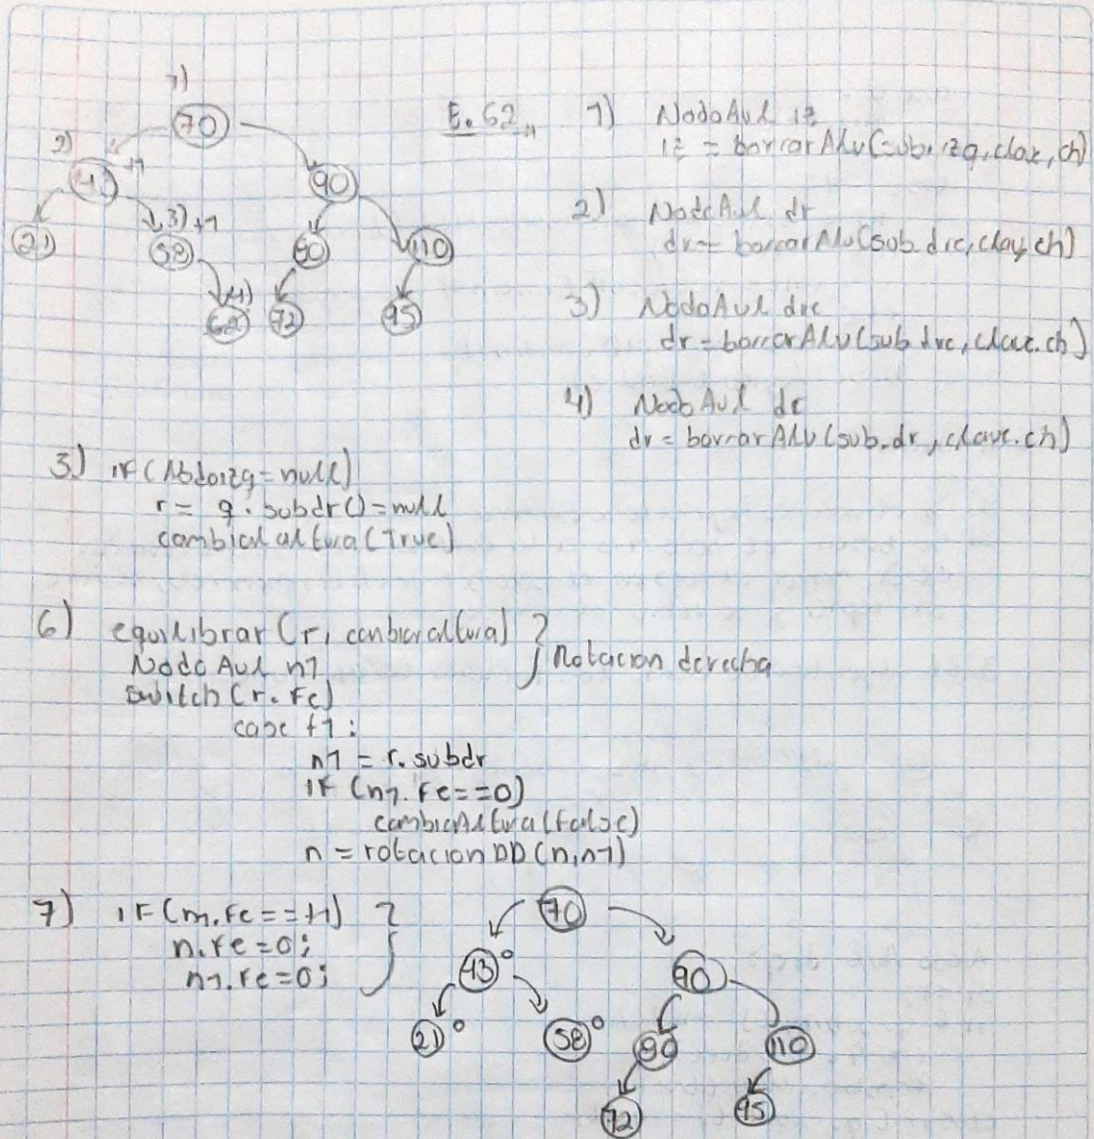 1)
70
2)
43 +1
90
21
3) +1
58
80
110
4)
62
72
95
E. 62
1) NodoAvl iz
iz = borrarAlv(sub.izq, clav, ch)
2) NodoAvl dr
dr = borrarAlv(sub.drc, clav, ch)
3) NodoAvl drc
dr = borrarAlv(sub.drc, clave.ch)
4) NodoAvl dr
dr = borrarAlv(sub.dr, clave.ch)
5) if (Nodoizq = null)
r = q.subdr() = null
cambialaltura(True)
6) equilibrar (r, cambiaraltura)
Nodo Avl n1
Rotacion derecha
switch (r.Fe)
case +1:
n1 = r.subdr
if (n1.Fe==0)
cambiaAltura(False)
n = rotacionDD(n,n1)
7) if (n1.Fe==+1)
n.Fe=0;
n1.Fe=0;
70
43 0
90
21 0
58 0
90
110
72
95